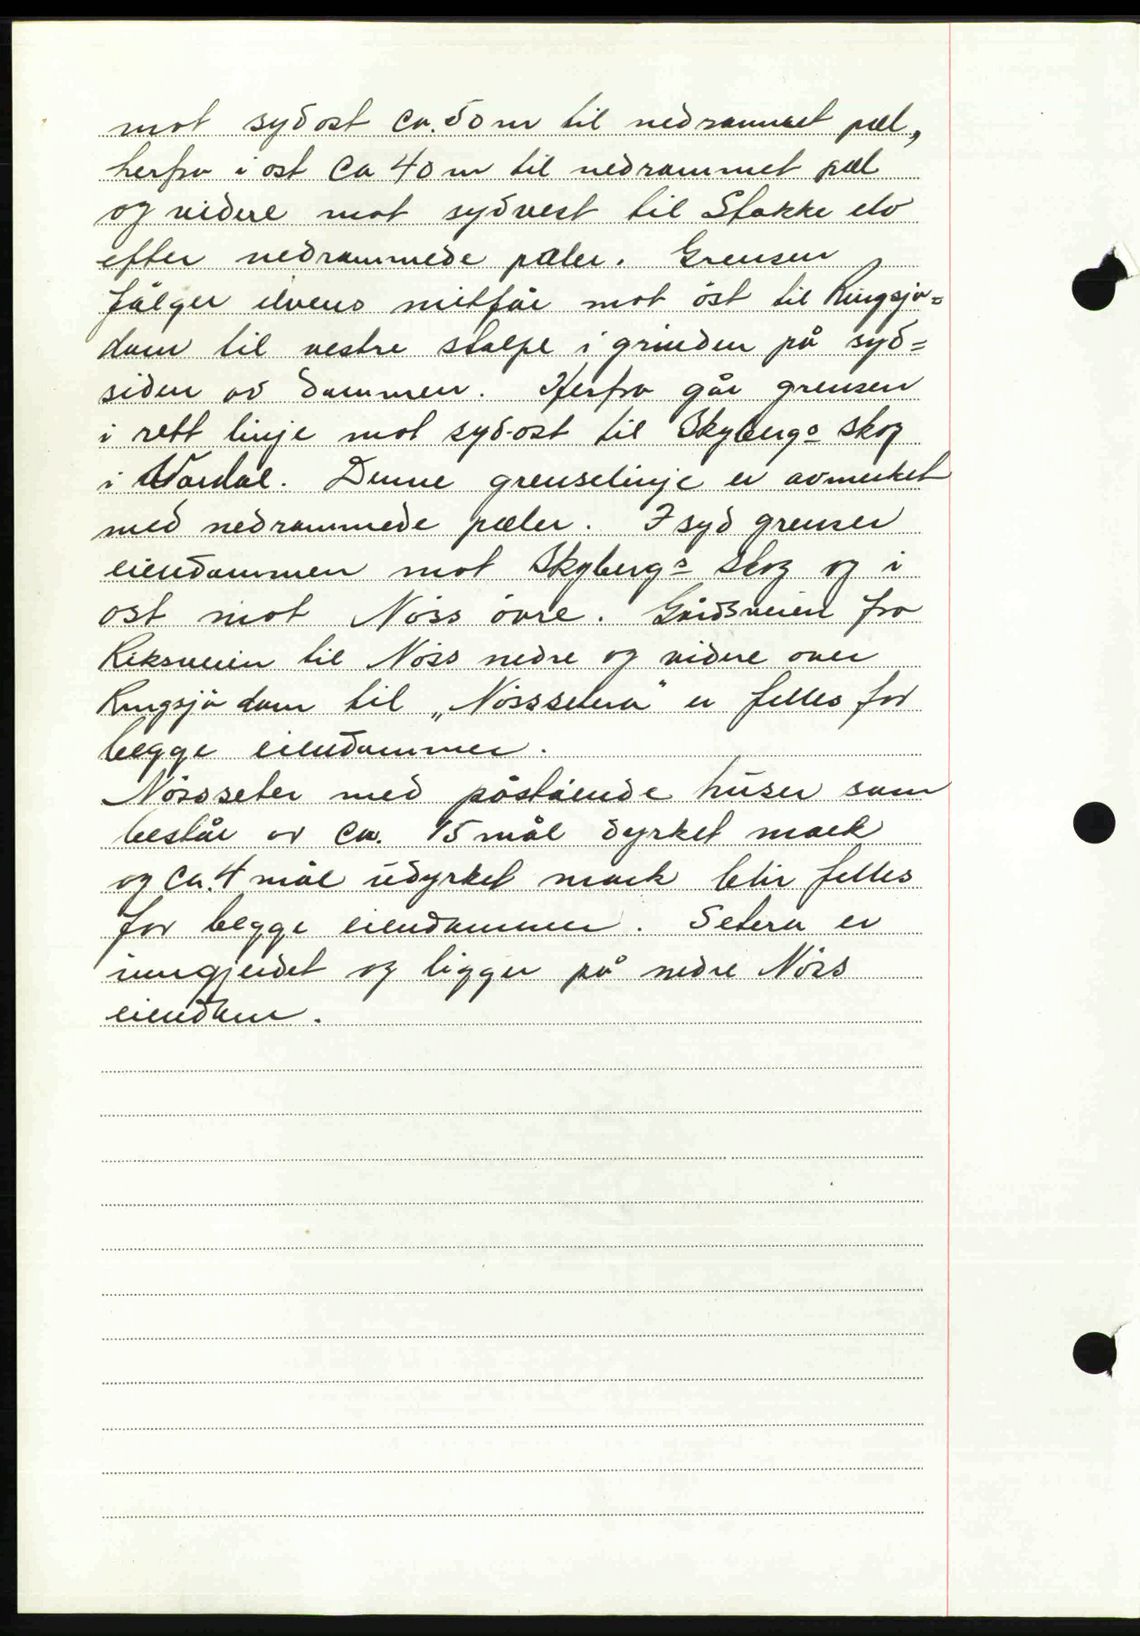 mot sydost ca. 50 m til nedrammet pæl,
herfra i ost ca 40 m til nedrammet pæl
og videre mot sydvest til Stokke elv
efter nedrammede pæler. Grensen
følger elvens mitfår mot öst til Ringsjö=
dam til vestre stolpe i grinden på syd=
siden av dammen. Herfra går grensen
i rett linje mot syd-ost til Skybergs skog
i Vardal. Denne grenselinje er avmerket
med nedrammede pæler. I syd grenser
eiendommen mot Skybergs skog og i
ost mot Nöss övre. Gårdsveien fra
Riksveien til Nöss nedre og videre over
Ringsjö dam til „Nössetera" er felles for
begge eiendommer.
Nössseter med påstående huser som
består av ca. 15 mål dyrket mark
og ca. 4 mål udyrket mark blir felles
for begge eiendommer. Setera er
inngjerdet og ligger på nedre Nöss
eiendom.